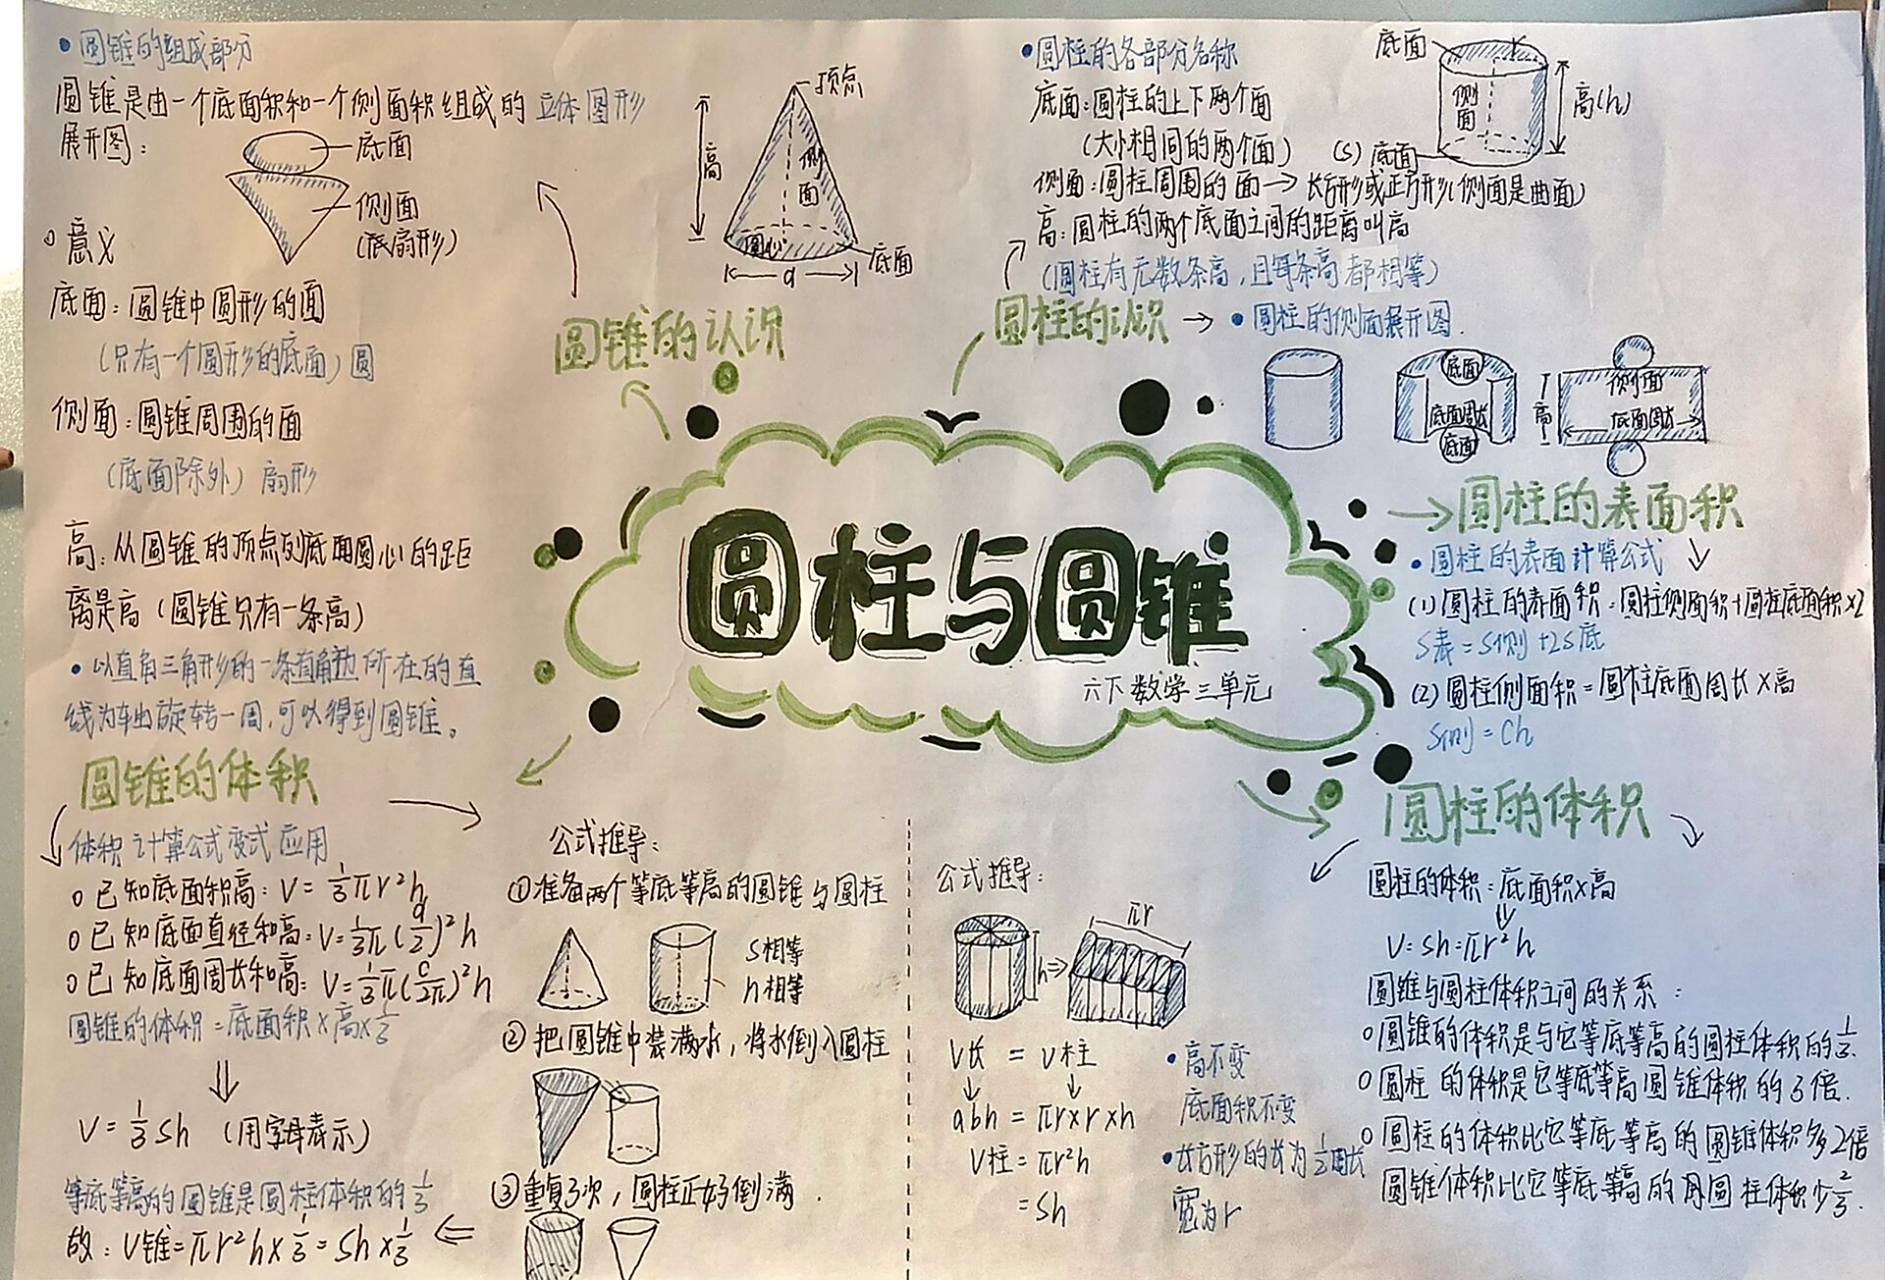 圆柱与圆锥
六下数学三单元
圆锥的认识
•圆锥的组成部分
圆锥是由一个底面积和一个侧面积组成的立体图形
展开图:
底面
侧面
(底扇形)
顶点
高
侧面
圆心
d
底面
意义
底面:圆锥中圆形的面
(只有一个圆形的底面)圆
侧面:圆锥周围的面
(底面除外)扇形
高:从圆锥的顶点到底面圆心的距
离是高(圆锥只有一条高)
•以直角三角形的一条直角边所在的直
线为轴旋转一周,可以得到圆锥。
圆柱的认识
•圆柱的各部分名称
底面:圆柱的上下两个面
(大小相同的两个面)
侧面:圆柱周围的面→长方形或正方形(侧面是曲面)
高:圆柱的两个底面之间的距离叫高
(圆柱有无数条高,且每条高都相等)
底面
侧面
高(h)
(S)底面
→•圆柱的侧面展开图.
底面
底面周长
底面
高
侧面
底面周长
→圆柱的表面积
•圆柱的表面计算公式
(1)圆柱的表面积=圆柱侧面积+圆柱底面积×2
S表=S侧+2S底
(2)圆柱侧面积=圆柱底面周长×高
S侧=Ch
圆锥的体积
体积计算公式变式应用
已知底面积高:V=1/3πr²h
已知底面直径和高:V=1/3π(d/2)²h
已知底面周长和高:V=1/3π(C/2π)²h
圆锥的体积=底面积×高×1/3
⇓
V=1/3Sh (用字母表示)
等底等高的圆锥是圆柱体积的1/3
故:V锥=πr²h×1/3=Sh×1/3
公式推导:
①准备两个等底等高的圆锥与圆柱
S相等
h相等
②把圆锥中装满水,将水倒入圆柱
③重复3次,圆柱正好倒满.
圆柱的体积
公式推导:
πr
h⇒
V长=V柱
↓ ↓
abh=πr×r×h
V柱=πr²h
=Sh
•高不变
底面积不变
•长方形的长为1/2周长
宽为r
圆柱的体积=底面积×高
⇓
V=Sh=πr²h
圆锥与圆柱体积之间的关系:
圆锥的体积是与它等底等高的圆柱体积的1/3.
圆柱的体积是它等底等高圆锥体积的3倍.
圆柱的体积比它等底等高的圆锥体积多2倍
圆锥体积比它等底等高的圆柱体积少2/3.